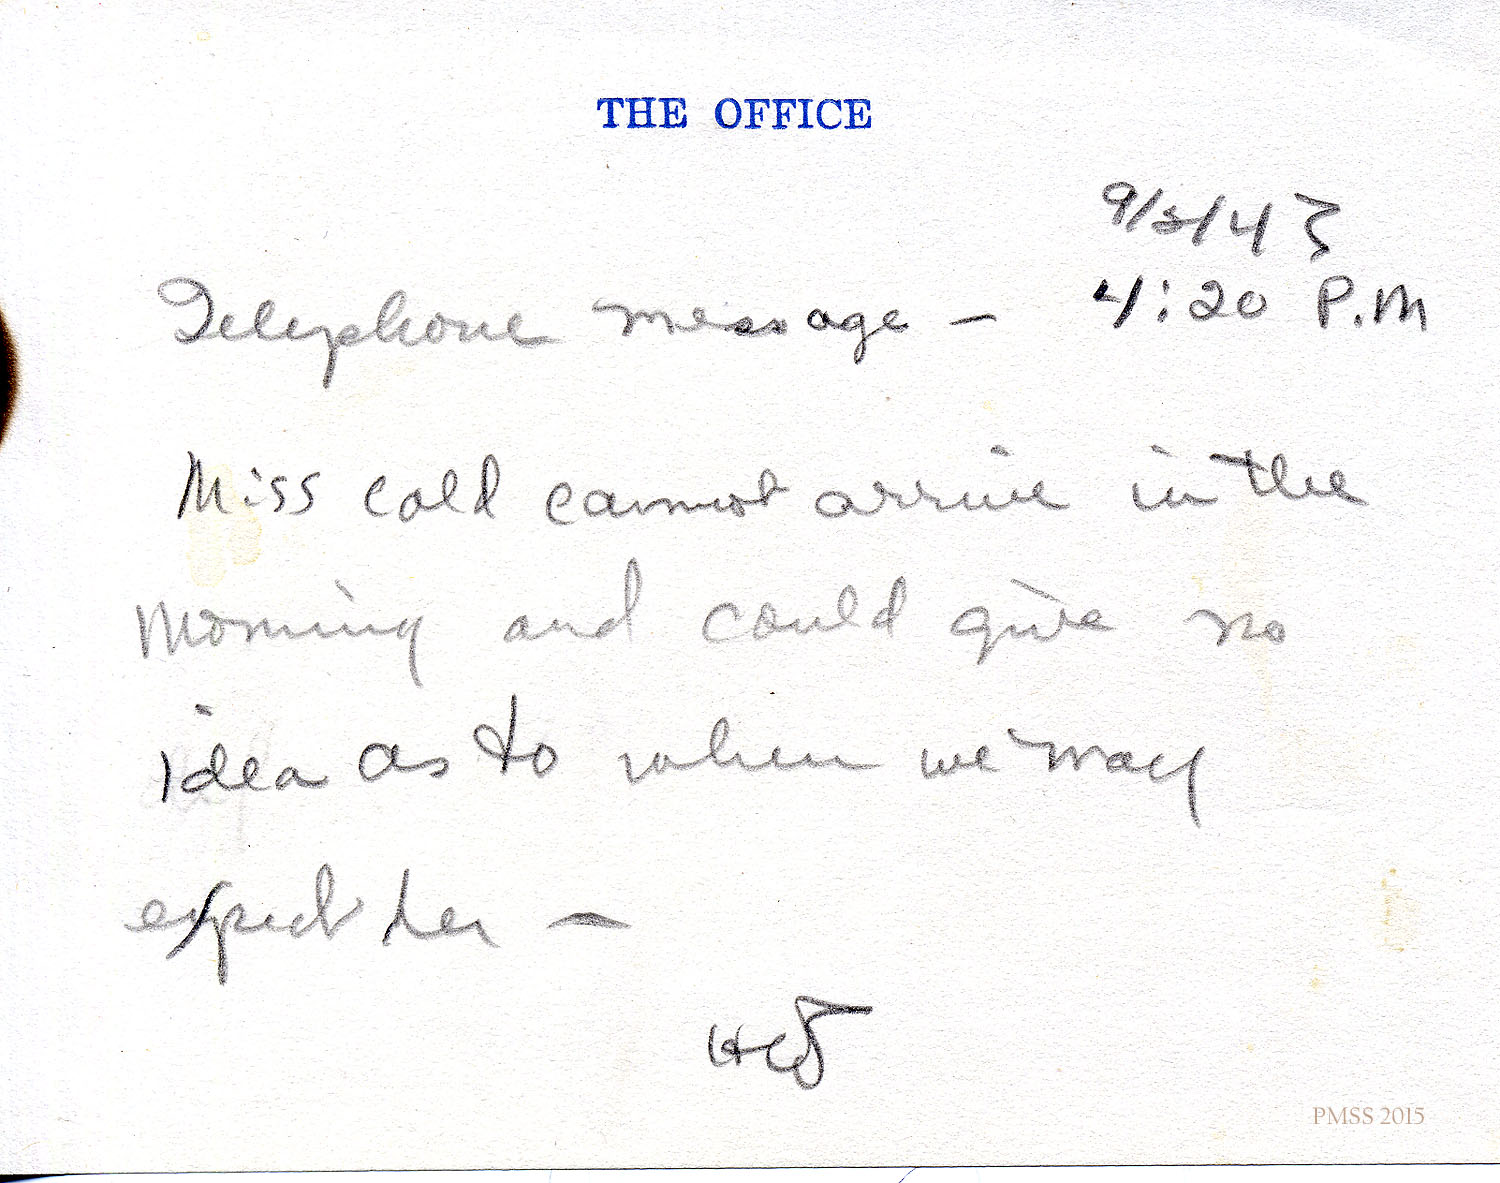 THE OFFICE
9/3/43
Telephone message — 4:20 P.M
Miss cold cannot arrive in the
morning and could give no
idea as to when we may
expect her —
PMSS 2015